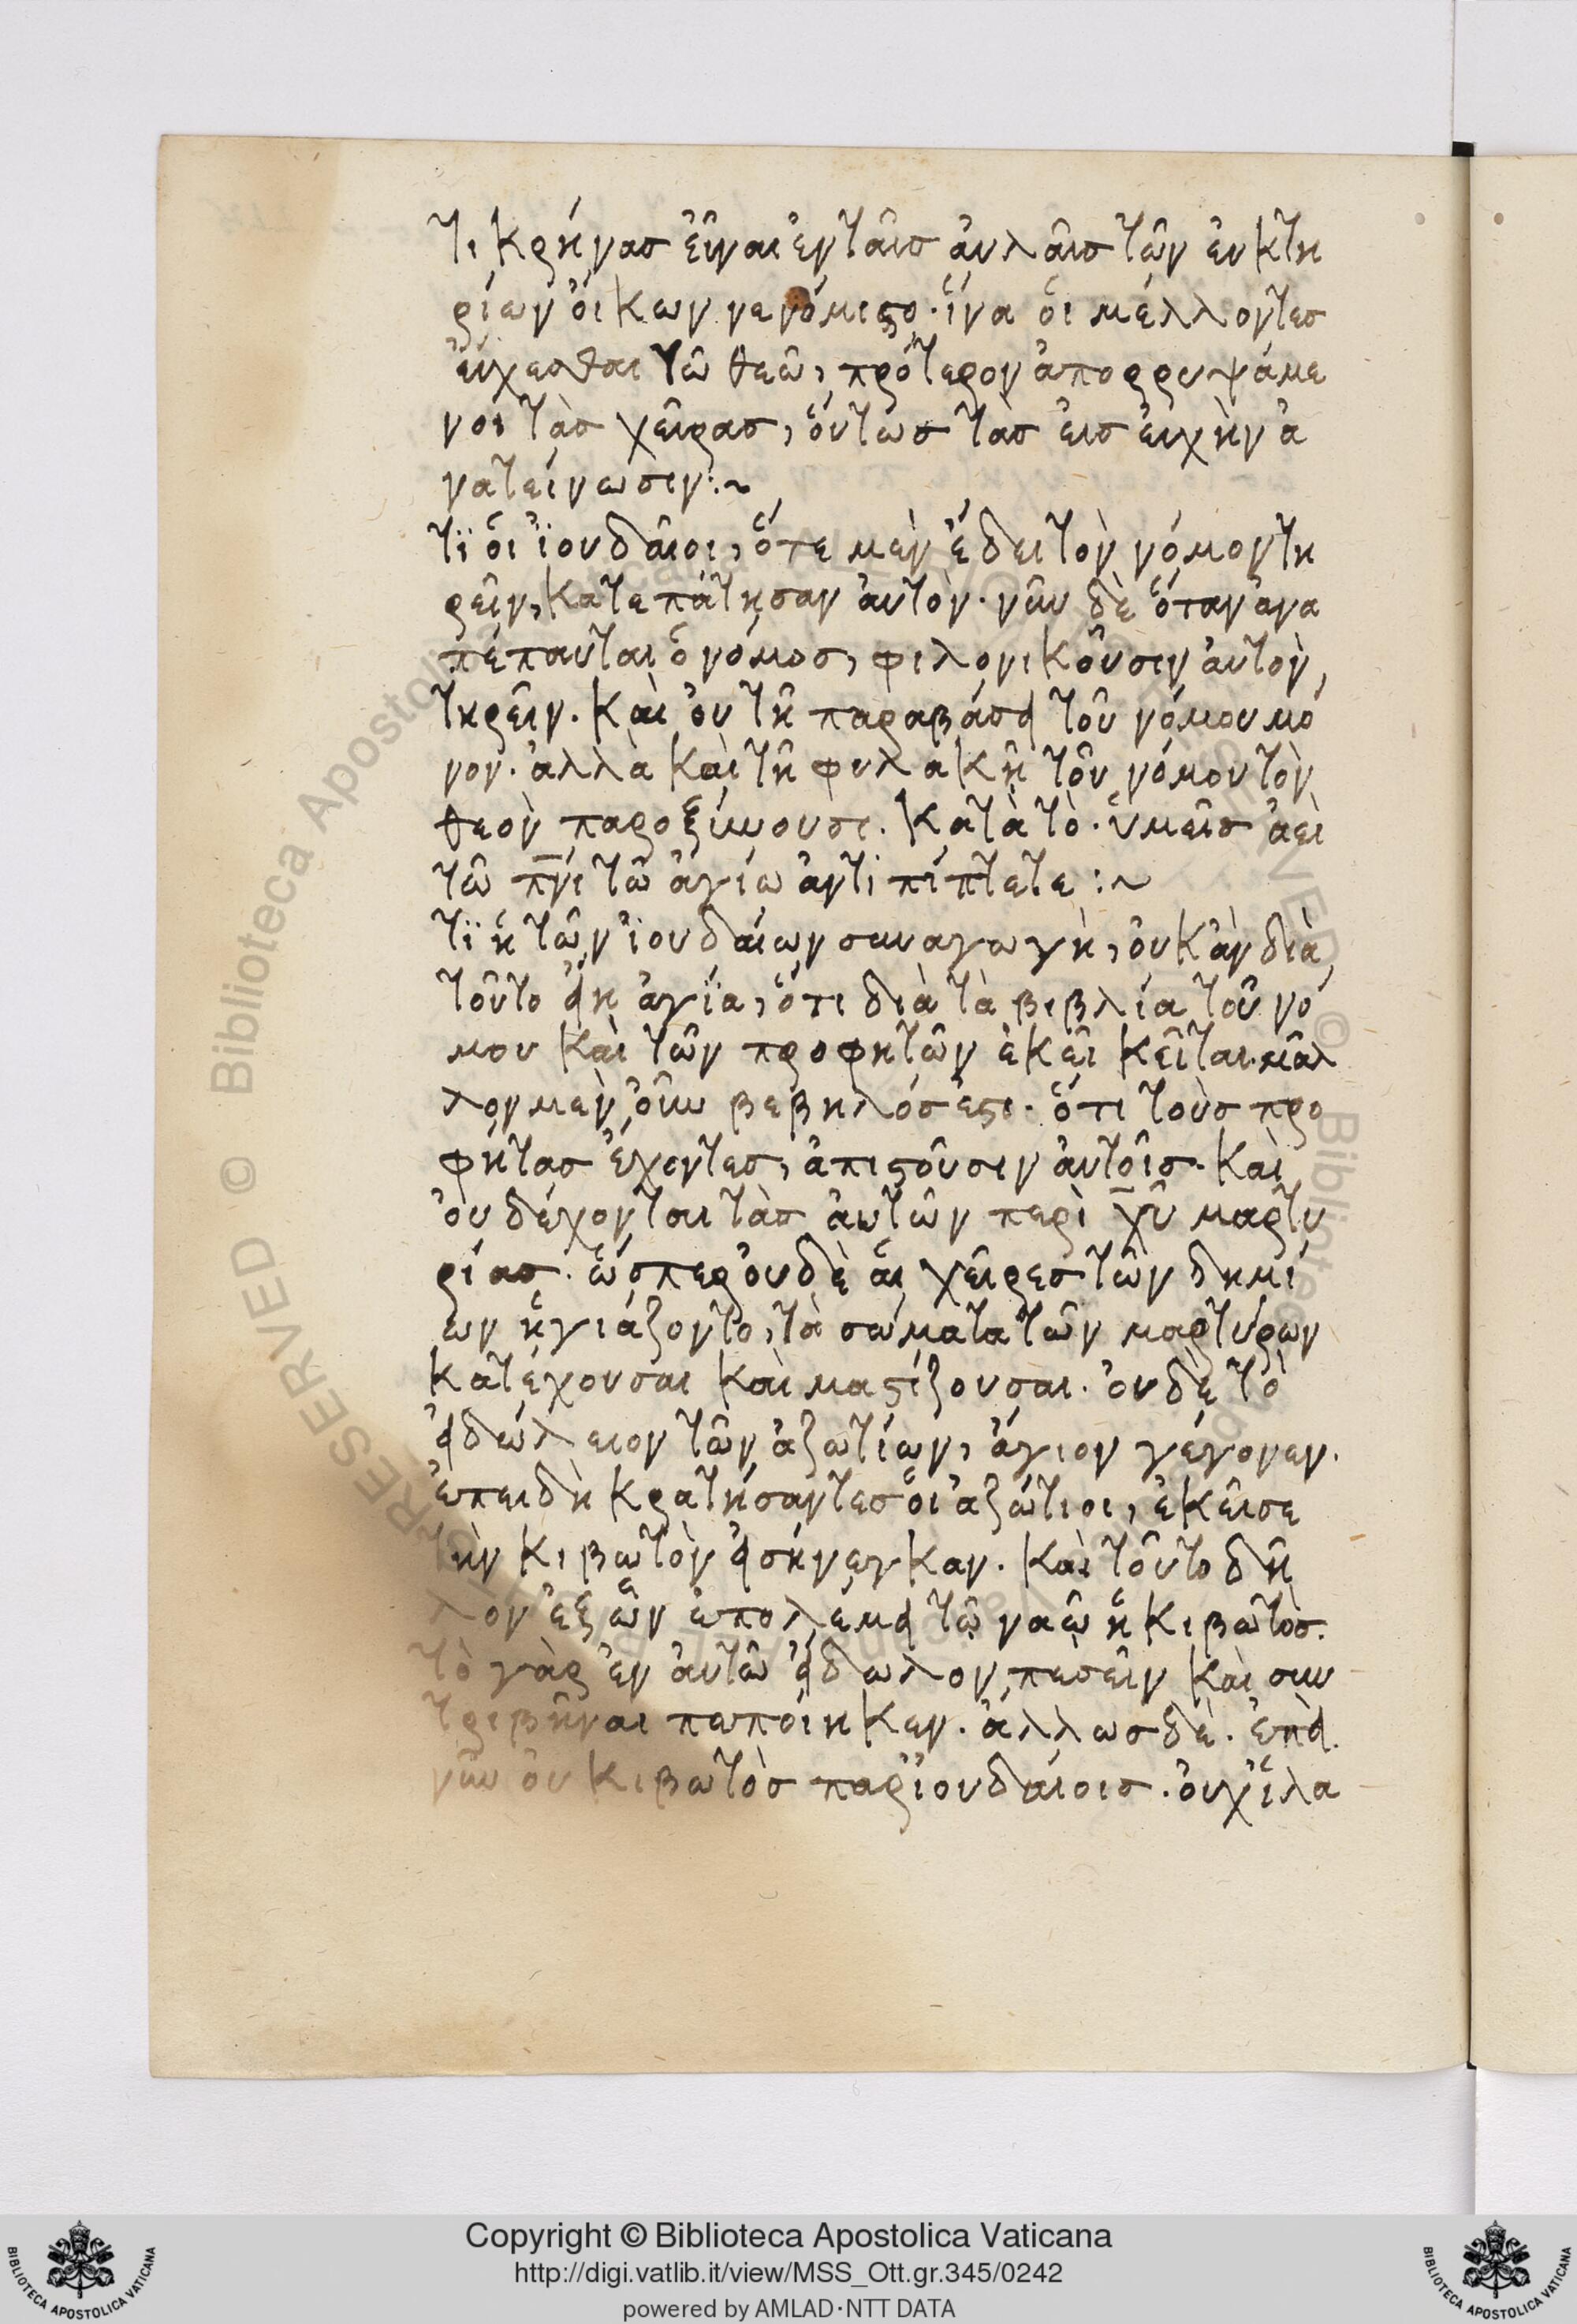 Τι κρήνασ ἐῖναι ἐν ταῖσ ἀυλαῖσ τῶν ἐυκτη
ρίων ὀίκων νενόμιστο· ἵνα ὁι μέλλοντεσ
ἐύχεσθαι τῶ θεῶ, πρότερον ἀπορρυψάμε
νοι τὰσ χεῖρασ, ὅυτωσ τὰσ ἐισ ἐυχὴν ἀ
νατείνωσιν:~
τϊ ὁι ϊουδαῖοι, ὅτε μὲν ἔδει τὸν νόμον τη
ρεῖν, κατεπάτησαν ἀυτὸν· νῦν δὲ ὅταν ἀνα
πέπαυται ὁ νόμοσ, φιλονικοῦσιν ἀυτὸν
τηρεῖν. καὶ ὀυ τῆ παραβάσει τοῦ νόμου μό
νον· ἀλλὰ καὶ τῆ φυλακῆ τοῦ νόμου τὸν
θεὸν παροξύνουσι. κατὰ τὸ· ὑμεῖσ ἀεὶ
τῶ πνι τῶ ἁγίω ἀντιπίπτετε:~
τϊ ἡ τῶν ϊουδαίων συναγωγὴ, ὀυκ ἂν διὰ
τοῦτο εἴη ἁγϊα, ὅτι διὰ τὰ βιβλία τοῦ νό
μου καὶ τῶν προφητῶν ἐκεῖ κεῖται. μᾶλ
λον μὲν ὀῦν βεβηλόσ ἐστι· ὅτι τοὺσ προ
φήτασ ἔχοντεσ, ἀπιστοῦσιν ἀυτοῖσ. καὶ
ὀυ δέχονται τὰσ ἀυτῶν περὶ χυ μαρτυ
ρίασ. ὥσπερ ὀυδὲ ἁι χεῖρεσ τῶν δημί
ων ἡγιάζοντο, τὰ σώματα τῶν μαρτύρων
κατέχουσαι καὶ μαστίζουσαι. ὀυδὲ τὸ
εἰδώλειον τῶν ἀζωτίων, ἅγιον γέγονεν.
ἐπειδὴ κρατήσαντεσ ὁι ἀζώτιοι, ἐκεῖσε
τὴν κιβωτὸν εἰσήνεγκαν. καὶ τοῦτο δῆ
λον ἐξ ὧν ἐπολέμει τῶ ναῶ ἡ κιβωτὸσ.
τὸ γὰρ ἐν ἀυτῶ εἴδωλον, πεσεῖν καὶ συν
τριβῆναι πεποίηκεν. ἄλλωσ δὲ. ἐπεὶ
νῦν ὀυ κιβωτὸσ παρ ϊουδαίοισ. ὀυχ ἱλα
Copyright © Biblioteca Apostolica Vaticana
http://digi.vatlib.it/view/MSS_Ott.gr.345/0242
powered by AMLAD·NTT DATA